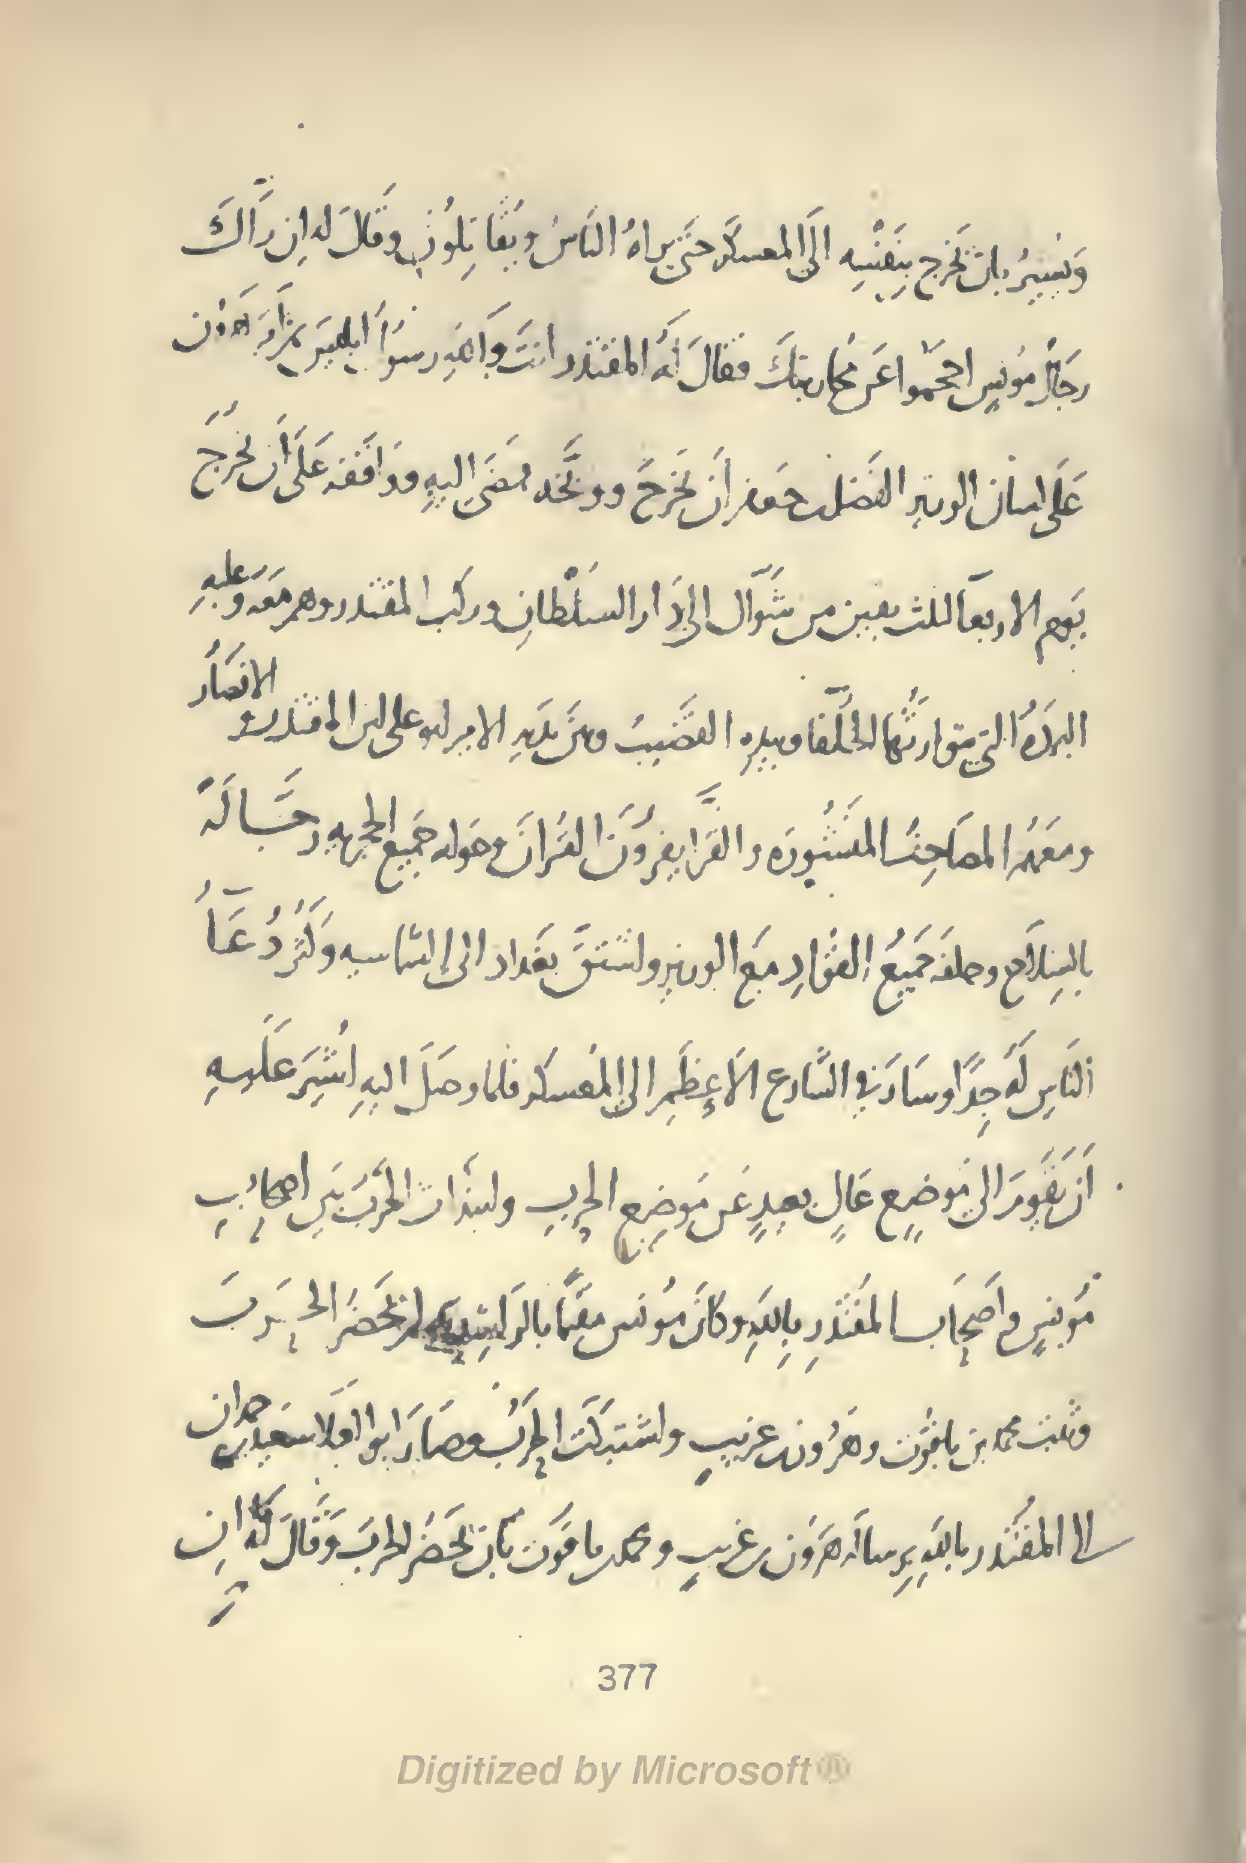 وَيُشِيرُ بان يَخرج بِنَفْسِه الَى المعسكر حتَى يراهُ الناسُ ويُقاتِلُون وقَالَ له ان رَآكَ
رجَالُ مُونسٍ احجموا عَن مُحاربتكَ فقالَ لَهُ المقتدر انتَ وَاللهِ رسوُل ابليسَ
عَلَى لسان الوزير الفضل بن جَعفر اَن يَخرجَ ووبَّخه فمضَى اليهِ ووَافقه عَلَى اَن يخرُجَ
يَوم الاربعآ لثلث بقين من شَوّال الى دَار السُلْطانِ وركب المقتدر وهو معَه وَعليهِ
البردَهُ التى يتوارثُها الخُلَفا وبيدِهِ القضيبُ وبين يَديهِ الامير ابو على ابن المقتدر والانصَارُ
ومعَهُم المصَاحِفُ المنشُورَه والقرّا يقرؤنَ القُرانَ وحَوله جَميع الحجريه رجّالَةً
بالسِلاَح وخلفه جَميعُ القُوّادِ مَع الوزيرِ واشتقَّ بغداد الى الشماسيه وَكثُر دُعَآُ
النَاسِ لَه جِدًا وسَارَ فى الشَارع الاَعظَمِ الى المُعسكر فلما وصَلَ اليهِ اُشِيرَ عَلَيهِ
اَن يَقوم الى مَوضِعٍ عَالٍ بعيدٍ عَن مَوضِع الحربِ وابتدَات الحَربُ بَين اصحَابِ
مُونسٍ واَصحَاب المُقتَدرِ بِاللهِ وكانَ مُونس مقيمًا بالرَاشديه لم يَحضر الحَربَ
وثبت محمد بن ياقُوت وهَرُون بن غريبٍ واشتبكَت الحَربُ وصَارَ ابو العَلا سَعيد بن حمدان
الى المقتَدر بالله بِرسالَه هَرُون بن غريبٍ ومحمد بن ياقوت بان يَحضُر الحربَ وَقالَ لَهُ ان
377
Digitized by Microsoft®